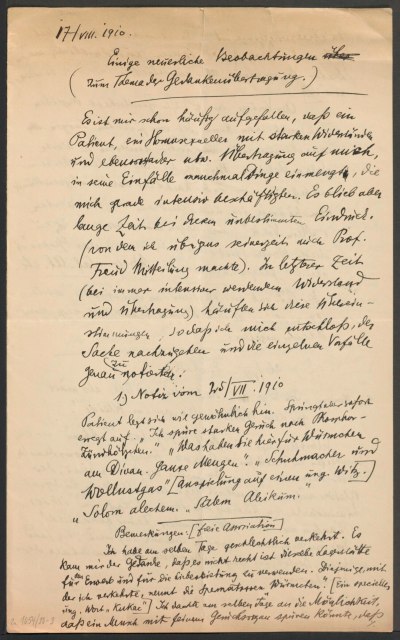 17/VIII. 1910.
Einige neuerliche Beobachtungen über
(zum Thema der Gedankenübertragung.)
Es ist mir schon häufig aufgefallen, daß ein
Patient, ein Homosexueller mit starken Widerständen
und ebenso starker Übertragung auf mich,
in seine Einfälle manchmal Dinge einmengte, die
mich grade intensiv beschäftigten. Es blieb aber
lange Zeit bei diesem unbestimmten Eindruck.
(von dem ich übrigens seinerzeit auch Prof.
Freud Mitteilung machte). In letzterer Zeit
(bei immer intensiver werdendem Widerstand
und Übertragung) häuften sich diese Überein-
stimmungen, sodaß ich mich entschloß, der
Sache nachzugehen und die einzelnen Vorfälle
genau zu notieren.
1) Notiz vom 25/VII. 1910
Patient legt sich wie gewöhnlich hin. Springt aber sofort
erregt auf. "Ich spüre starken Geruch nach Phosphor-
Zündhölzchen." "Was haben Sie hier für Würmchen
am Divan. Ganze Mengen". "Schuhmacher und
Wollustgas" [Anspielung auf einen ung. Witz.]
"Solom alechem." "Salem Aleikum."
Bemerkungen: [freie Assoziation]
Ich habe am selben Tage geschlechtlich verkehrt. Es
kam mir der Gedanke, daß es nicht recht ist dieselbe Lagerstätte
für den Erwerb und für die Liebe zu verwenden. Diejenige, mit
der ich verkehrte, nennt die Spermatozoen Würmchen. [Ein spezielles
ung. Wort "Kukac"] Ich dachte am selben Tage an die Möglichkeit,
daß ein Mensch mit feinem Geruchsorgan spüren könnte, daß